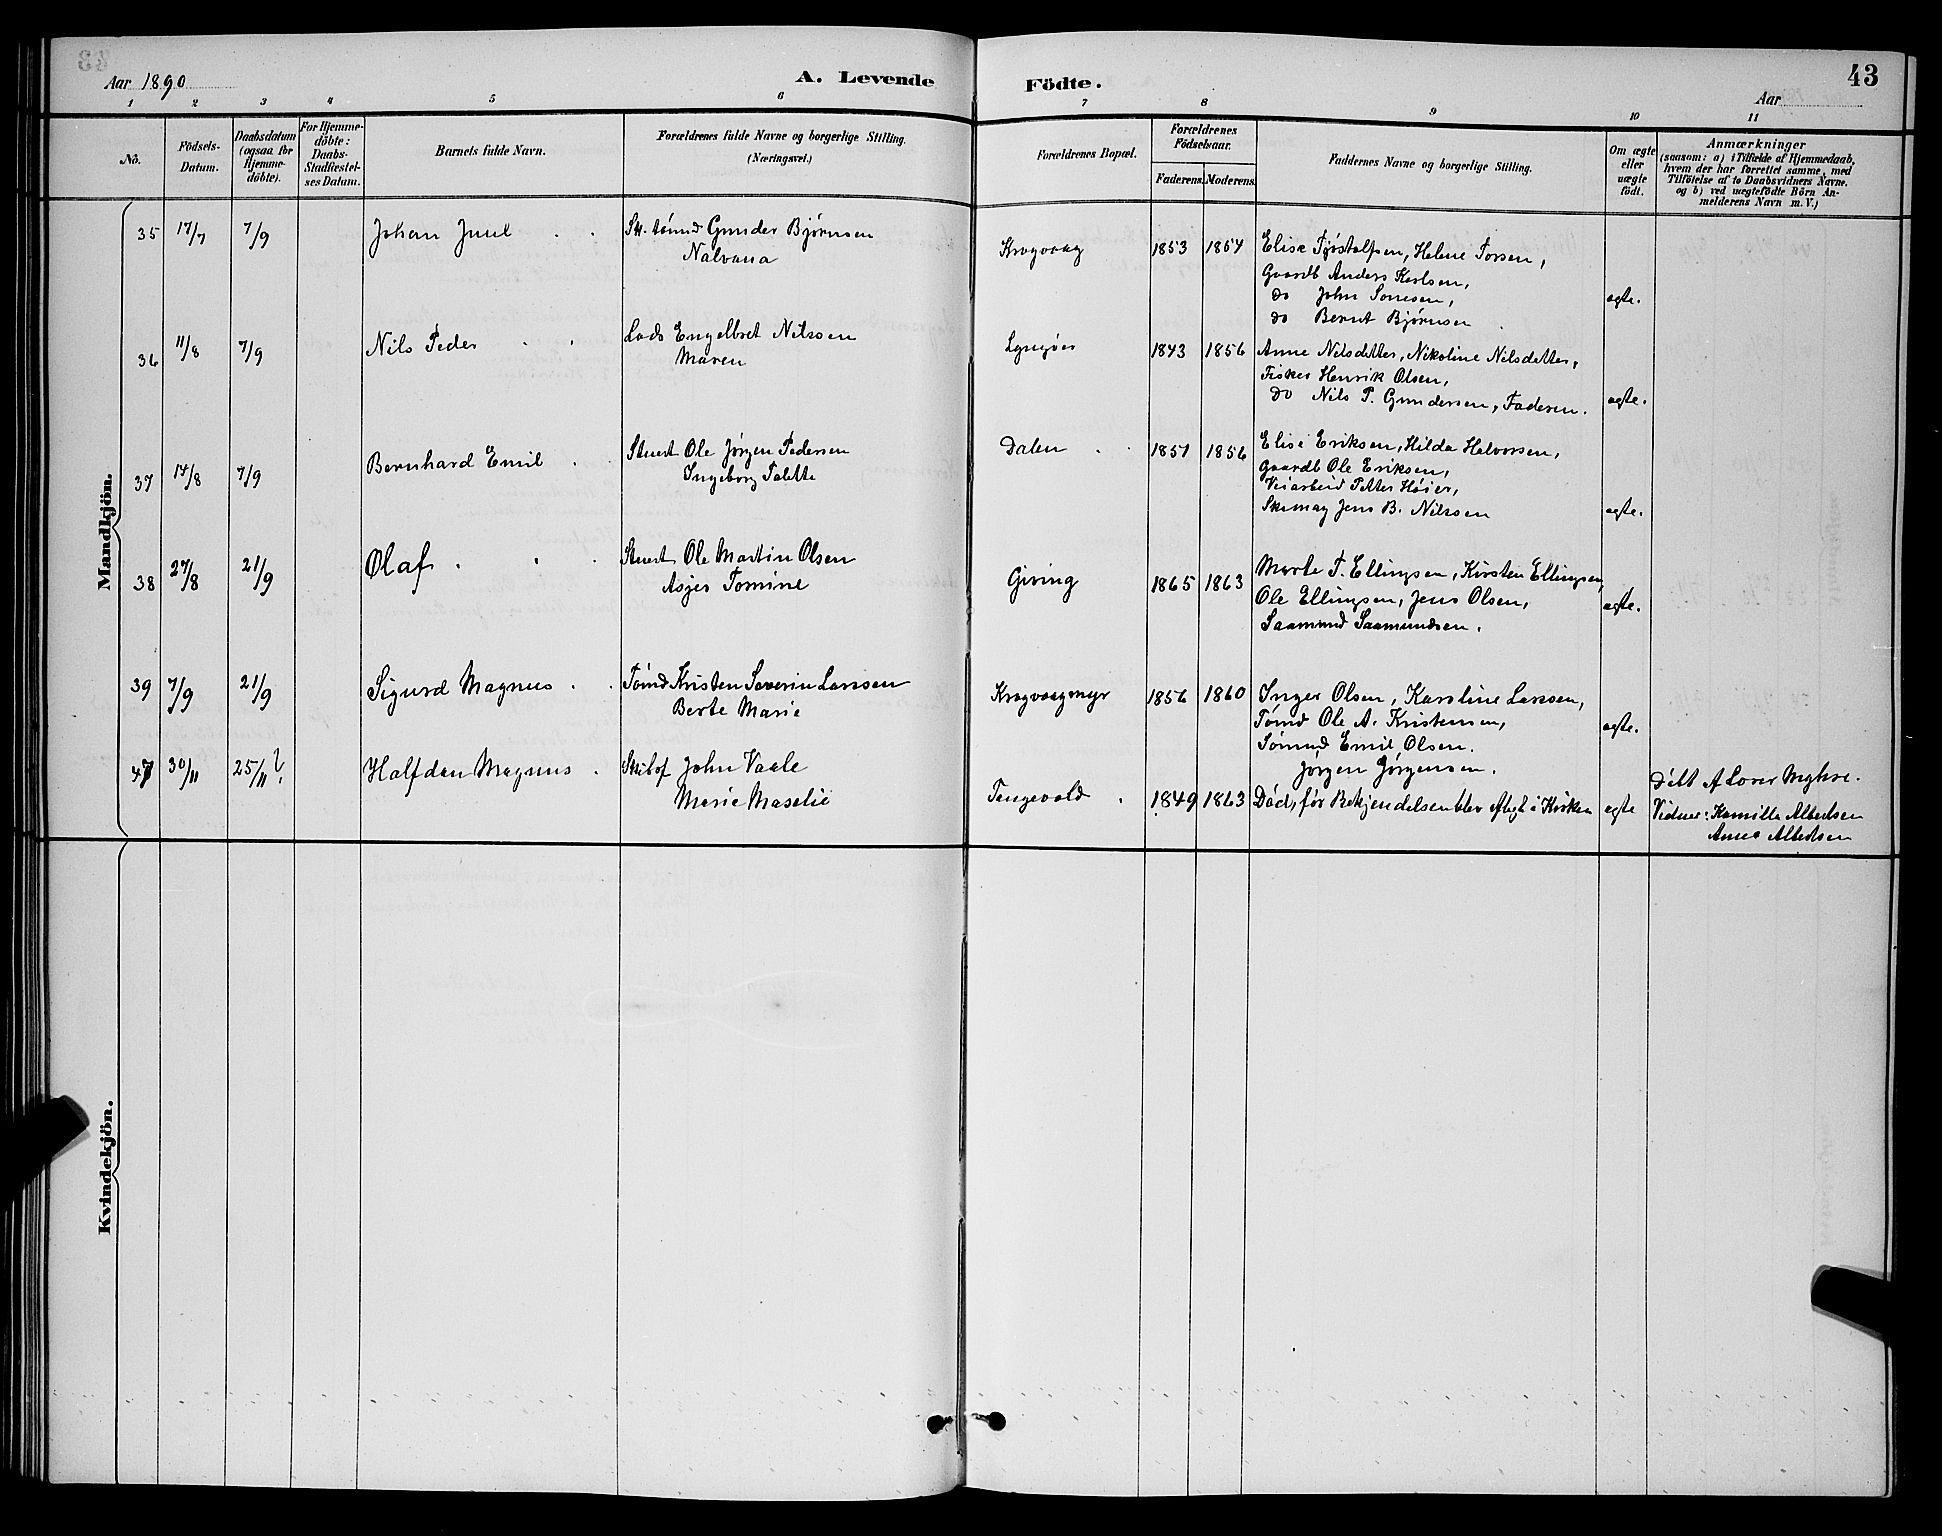 Aar 1890
A. Levende
Födte.
43
Aar
1 2 3 4 5 6 7 8 9 10 11
No.
Födsels-Datum.
Daabsdatum (ogsaa for Hjemme-döbte).
For Hjemme-döbte: Daabs-Stadfæstel-ses Datum.
Barnets fulde Navn.
Forældrenes fulde Navne og borgerlige Stilling.
(Næringsvei.)
Forældrenes Bopæl.
Forældrenes Födselsaar.
Faderens. Moderens.
Faddernes Navne og borgerlige Stilling.
Om ægte eller uægte födt.
Anmærkninger
(saasom: a) i Tilfælde af Hjemmedaab,
hvem der har forrettet samme, med
Tilföielse af to Daabsvidners Navne.
og b) ved uægtefödte Börn An-
melderens Navn m. V.)
Mandkjön.
35 17/7 7/9 Johan Juul Gunder Bjørnsen Krogvaag 1853 1854 Elise Tjøstolfsen, Helene Torsen,
Gaardb Anders Karlsen,
do John Sonesen, ægte.
do Bernt Bjørnsen
36 11/8 7/9 Nils Peder Lods Engelbret Nilssen Lyngøer 1843 1856 Anne Nilsdetter, Nikoline Nilsdetter,
Maren
Fisker Henrik Olsen,
do Nils P. Gundersen, Faderen. ægte.
37 14/8 7/9 Bernhard Emil Stuert Ole Jørgen Pedersen Dalen 1851 1856 Elise Eriksen, Hilda Halvorsen,
Ingeborg Talette
Gaardb Ole Eriksen,
Veiarbeid Petter Høier,
Jens B. Nilssen ægte.
38 27/8 21/9 Olaf Stuert Ole Martin Olsen Giving 1865 1863 Marte T. Ellingsen, Kirsten Ellingsen,
Asjer Tomine
Ole Ellingsen, Jens Olsen, ægte.
Saamund Saamundsen.
39 7/9 21/9 Sigurd Magnus Tømd Kristen Severin Larssen Krogvaagmyr 1856 1860 Inger Olsen, Karoline Larssen,
Berte Marie
Tømd Ole A. Kristensen, ægte.
Sømnd Emil Olsen.
Jørgen Jørgensen.
47 30/11 25/11 ? Halfdan Magnus John Vaale Tangevald 1849 1863 Død, før Bekjendelsen blev aflagt i Kirken ægte
Marie Maselie
Vidner: Kamilla Albertsen
Anna Albertsen
Kvindekjön.